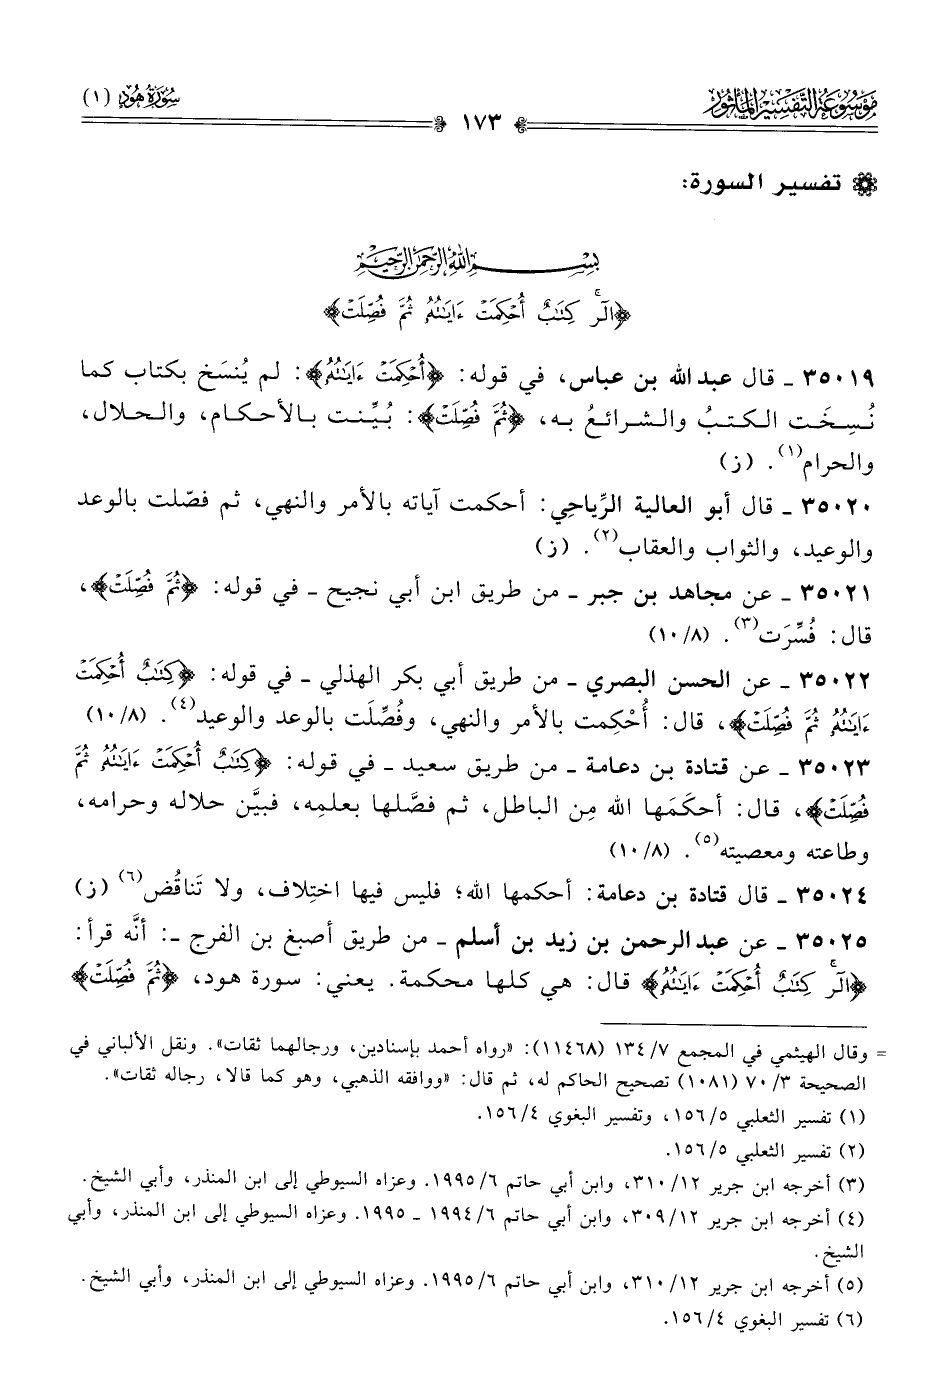 مَوْسُوعَةُ التَّفْسِيرِ المَأْثُورِ
١٧٣
سُورَةُ هُود (١)
تفسير السورة:
بِسْمِ اللَّهِ الرَّحْمَٰنِ الرَّحِيمِ
﴿الٓر كِتَٰبٌ أُحْكِمَتْ ءَايَٰتُهُۥ ثُمَّ فُصِّلَتْ﴾
٣٥٠١٩ ـ قال عبد الله بن عباس، في قوله: ﴿أُحْكِمَتْ ءَايَٰتُهُۥ﴾: لم يُنسَخ بكتاب كما
نُسِخَت الكتبُ والشرائعُ به، ﴿ثُمَّ فُصِّلَتْ﴾: بُيِّنت بالأحكام، والحلال،
والحرام(١). (ز)
٣٥٠٢٠ ـ قال أبو العالية الرِّياحِي: أحكمت آياته بالأمر والنهي، ثم فصّلت بالوعد
والوعيد، والثواب والعقاب(٢). (ز)
٣٥٠٢١ ـ عن مجاهد بن جبر ـ من طريق ابن أبي نجيح ـ في قوله: ﴿ثُمَّ فُصِّلَتْ﴾،
قال: فُسِّرَت(٣). (١٠/٨)
٣٥٠٢٢ ـ عن الحسن البصري ـ من طريق أبي بكر الهذلي ـ في قوله: ﴿كِتَٰبٌ أُحْكِمَتْ
ءَايَٰتُهُۥ ثُمَّ فُصِّلَتْ﴾، قال: أُحْكِمت بالأمر والنهي، وفُصِّلَت بالوعد والوعيد(٤). (١٠/٨)
٣٥٠٢٣ ـ عن قتادة بن دعامة ـ من طريق سعيد ـ في قوله: ﴿كِتَٰبٌ أُحْكِمَتْ ءَايَٰتُهُۥ ثُمَّ
فُصِّلَتْ﴾، قال: أحكَمَها الله مِن الباطل، ثم فصَّلها بعلمِه، فبيَّن حلاله وحرامه،
وطاعته ومعصيته(٥). (١٠/٨)
٣٥٠٢٤ ـ قال قتادة بن دعامة: أحكمها الله؛ فليس فيها اختِلاف، ولا تَناقُض(٦) (ز)
٣٥٠٢٥ ـ عن عبد الرحمن بن زيد بن أسلم ـ من طريق أصبغ بن الفرج ـ: أنَّه قرأ:
﴿الٓر كِتَٰبٌ أُحْكِمَتْ ءَايَٰتُهُۥ﴾ قال: هي كلها محكمة. يعني: سورة هود، ﴿ثُمَّ فُصِّلَتْ﴾
= وقال الهيثمي في المجمع ٧/ ١٣٤ (١١٤٦٨): «رواه أحمد بإسنادين، ورجالهما ثقات». ونقل الألباني في
الصحيحة ٣/ ٧٠ (١٠٨١) تصحيح الحاكم له، ثم قال: «ووافقه الذهبي، وهو كما قالا، رجاله ثقات».
(١) تفسير الثعلبي ٥/ ١٥٦، وتفسير البغوي ٤/ ١٥٦.
(٢) تفسير الثعلبي ٥/ ١٥٦.
(٣) أخرجه ابن جرير ١٢/ ٣١٠، وابن أبي حاتم ٦/ ١٩٩٥. وعزاه السيوطي إلى ابن المنذر، وأبي الشيخ.
(٤) أخرجه ابن جرير ١٢/ ٣٠٩، وابن أبي حاتم ٦/ ١٩٩٤ ـ ١٩٩٥. وعزاه السيوطي إلى ابن المنذر، وأبي
الشيخ.
(٥) أخرجه ابن جرير ١٢/ ٣١٠، وابن أبي حاتم ٦/ ١٩٩٥. وعزاه السيوطي إلى ابن المنذر، وأبي الشيخ.
(٦) تفسير البغوي ٤/ ١٥٦.